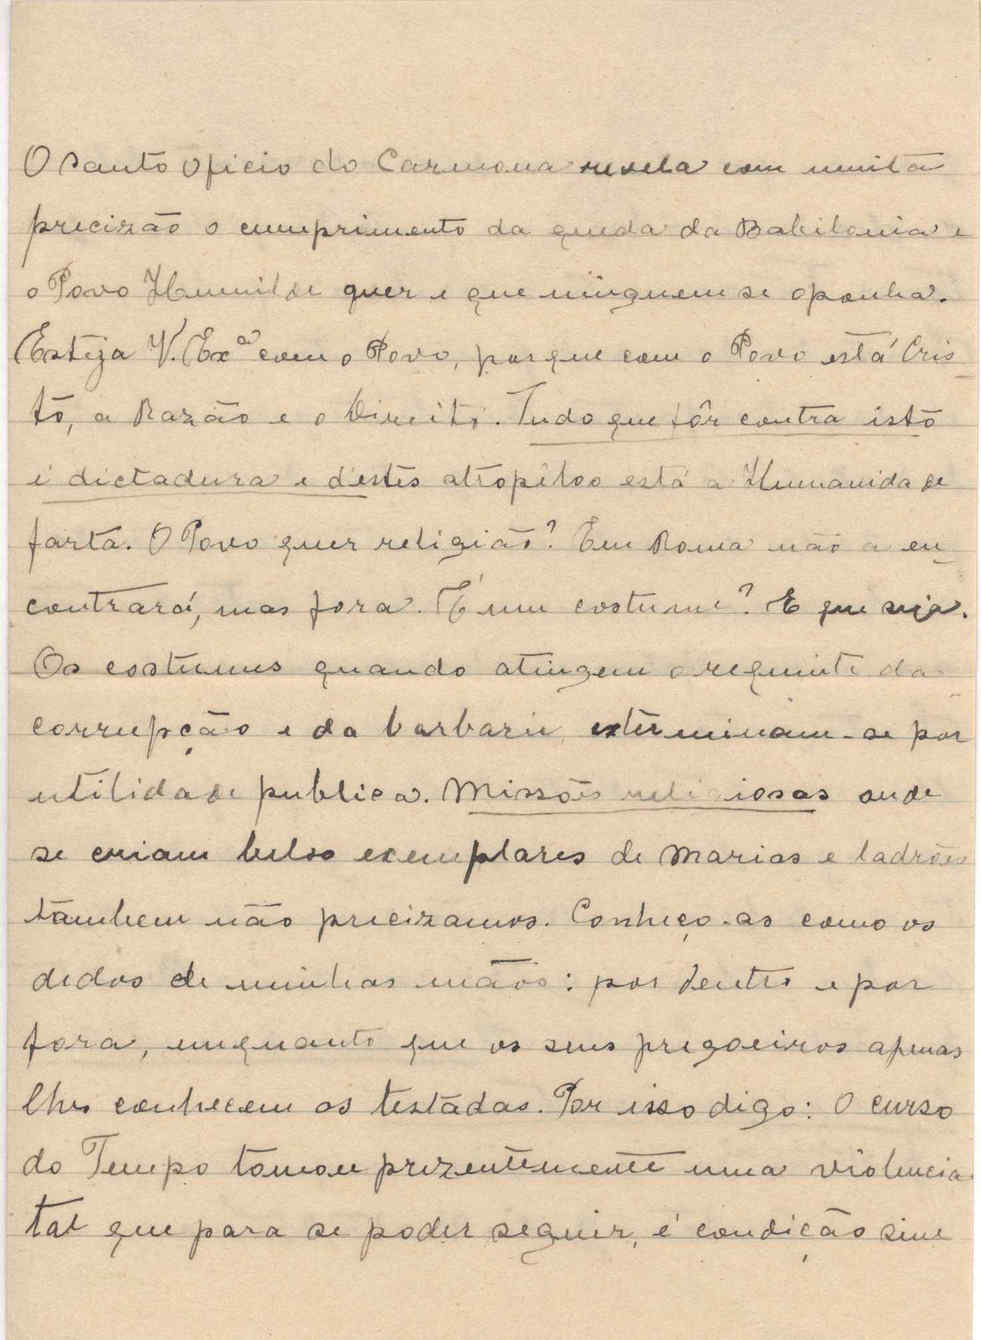 O Santo Oficio do Carmona revela com muita
precizão o cumprimento da queda da Babilonia e
o Povo Humilde quer e que ninguem se oponha.
Esteja V. Exª com o Povo, porque com o Povo está Cris-
to, a Razão e o Direito. Tudo que fôr contra isto
é dictadura e déstes atropêlos está a Humanidade
farta. O Povo quer religião? Em Roma não a en-
contrará, mas fora. É um costume? E que seja.
Os costumes quando atingem o requinte da
corrupção e da barbarie, exterminam-se por
utilidade publica. Missões religiosas onde
se criam belos exemplares de Marias e ladrões
tâmbem não precizamos. Conheço-as como os
dedos de minhas mãos: por dentro e por
fora, emquanto que os seus pregoeiros apenas
lhes conhecem as testadas. Por isso digo: O curso
do Tempo tomou prezentemente uma violencia
tal que para se poder seguir, é condição sine